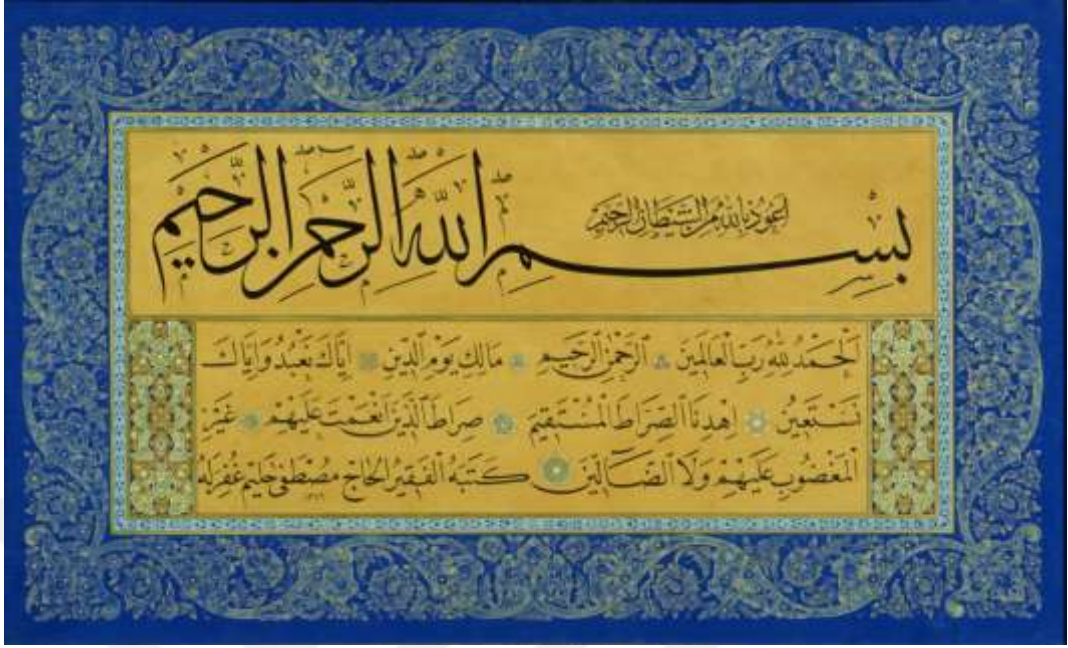 اعوذ بالله من الشيطان الرجيم
بِسْمِ اللهِ الرَّحْمٰنِ الرَّحِيمِ
اَلْحَمْدُ لِلّٰهِ رَبِّ الْعَالَمِينَ الرَّحْمٰنِ الرَّحِيمِ مَالِكِ يَوْمِ الدِّينِ اِيَّاكَ نَعْبُدُ وَاِيَّاكَ
نَسْتَعِينُ اِهْدِنَا الصِّرَاطَ الْمُسْتَقِيمَ صِرَاطَ الَّذِينَ اَنْعَمْتَ عَلَيْهِمْ غَيْرِ
الْمَغْضُوبِ عَلَيْهِمْ وَلَا الضَّالِّينَ كَتَبَهُ الْفَقِيرُ الْحَاجّ مُصْطَفٰى حَلِيم غُفِرَ لَهُ